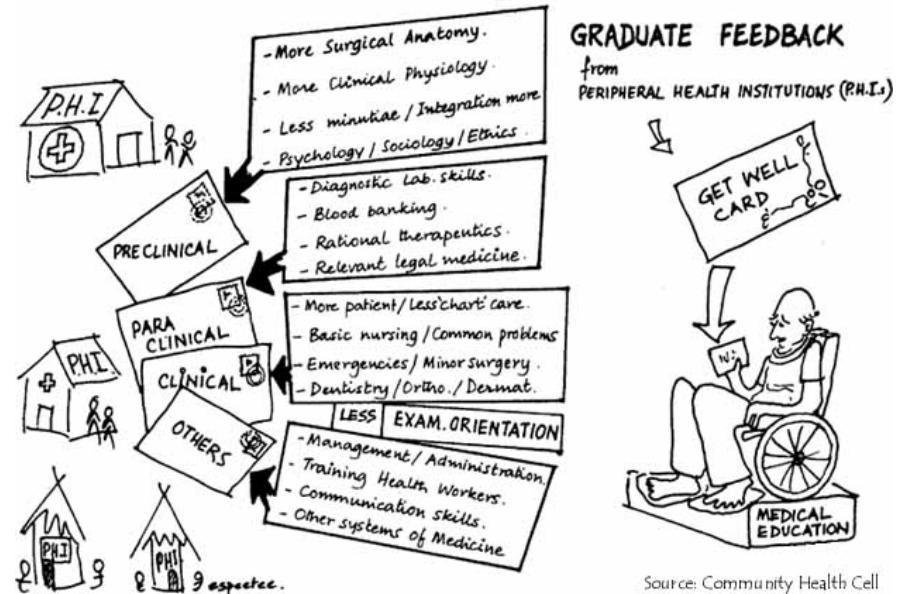 GRADUATE FEEDBACK
from
PERIPHERAL HEALTH INSTITUTIONS (P.H.I.s)
GET WELL
CARD
MEDICAL
EDUCATION
P.H.I
- More Surgical Anatomy.
- More Clinical Physiology.
- Less minutiae / Integration more
- Psychology / Sociology / Ethics.
PRECLINICAL
- Diagnostic Lab. skills.
- Blood banking.
- Rational therapeutics.
- Relevant legal medicine.
PARA
CLINICAL
- More patient / Less 'chart' care.
- Basic nursing / Common problems
- Emergencies / Minor surgery.
- Dentistry / Ortho. / Dermat.
CLINICAL
P.H.I.
LESS EXAM. ORIENTATION
- Management / Administration.
- Training Health Workers.
- Communication skills.
- Other systems of Medicine
OTHERS
P.H.I
PHI
Source: Community Health Cell